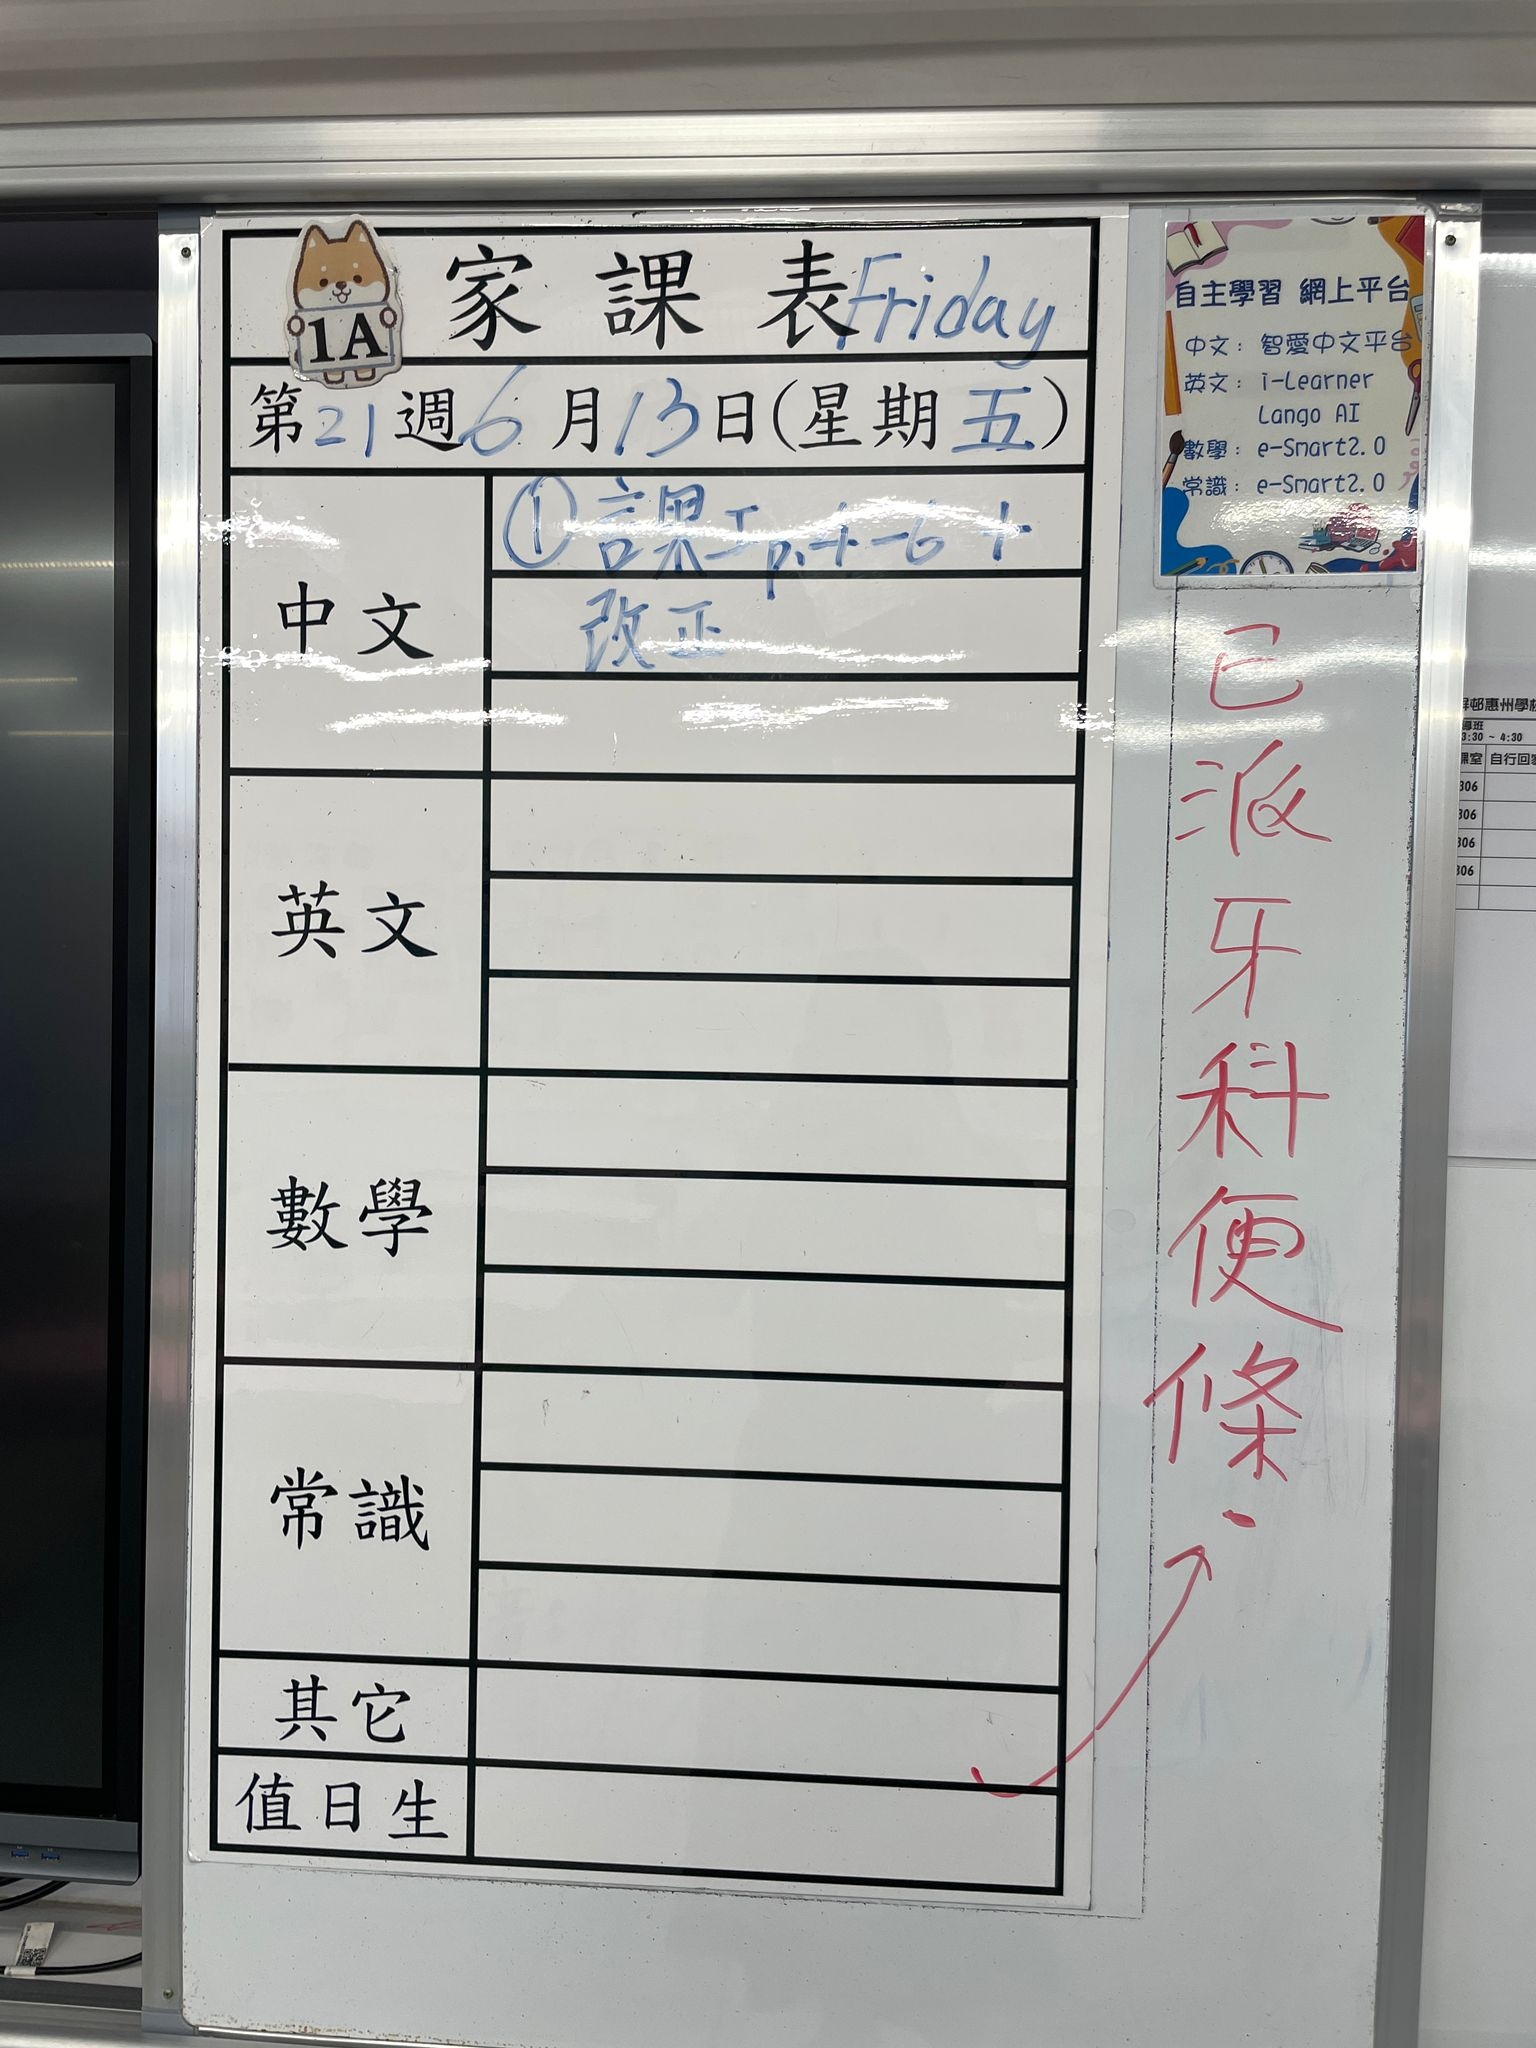 家課表 Friday
1A
第21週6月13日(星期五)
中文
①課工p.4-6 +
改正
英文
數學
常識
其它
值日生
自主學習 網上平台
中文： 智愛中文平台
英文： i-Learner
Lango AI
數學： e-Smart2.0
常識： e-Smart2.0
已派牙科便條.
邨惠州學校
導班
3:30 ~ 4:30
課室 自行回家
306
306
306
306